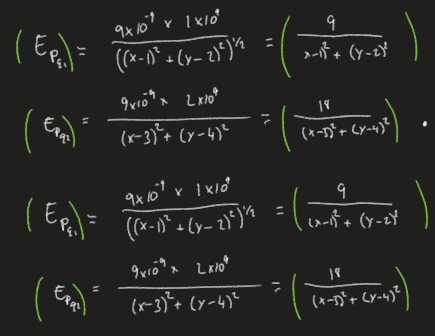 (E_{P_{q_1}}) = \frac{9x10^{-9} x 1x10^{9}}{((x-1)^2 + (y-2)^2)^{1/2}} = (\frac{9}{x-1)^2 + (y-2)^2})
(E_{P_{q_2}}) = \frac{9x10^{-9} x 2x10^{9}}{(x-3)^2 + (y-4)^2} = (\frac{18}{(x-3)^2 + (y-4)^2}) .
(E_{P_{q_1}}) = \frac{9x10^{-9} x 1x10^{9}}{((x-1)^2 + (y-2)^2)^{1/2}} = (\frac{9}{(x-1)^2 + (y-2)^2})
(E_{P_{q_2}}) = \frac{9x10^{-9} x 2x10^{9}}{(x-3)^2 + (y-4)^2} = (\frac{18}{(x-3)^2 + (y-4)^2})